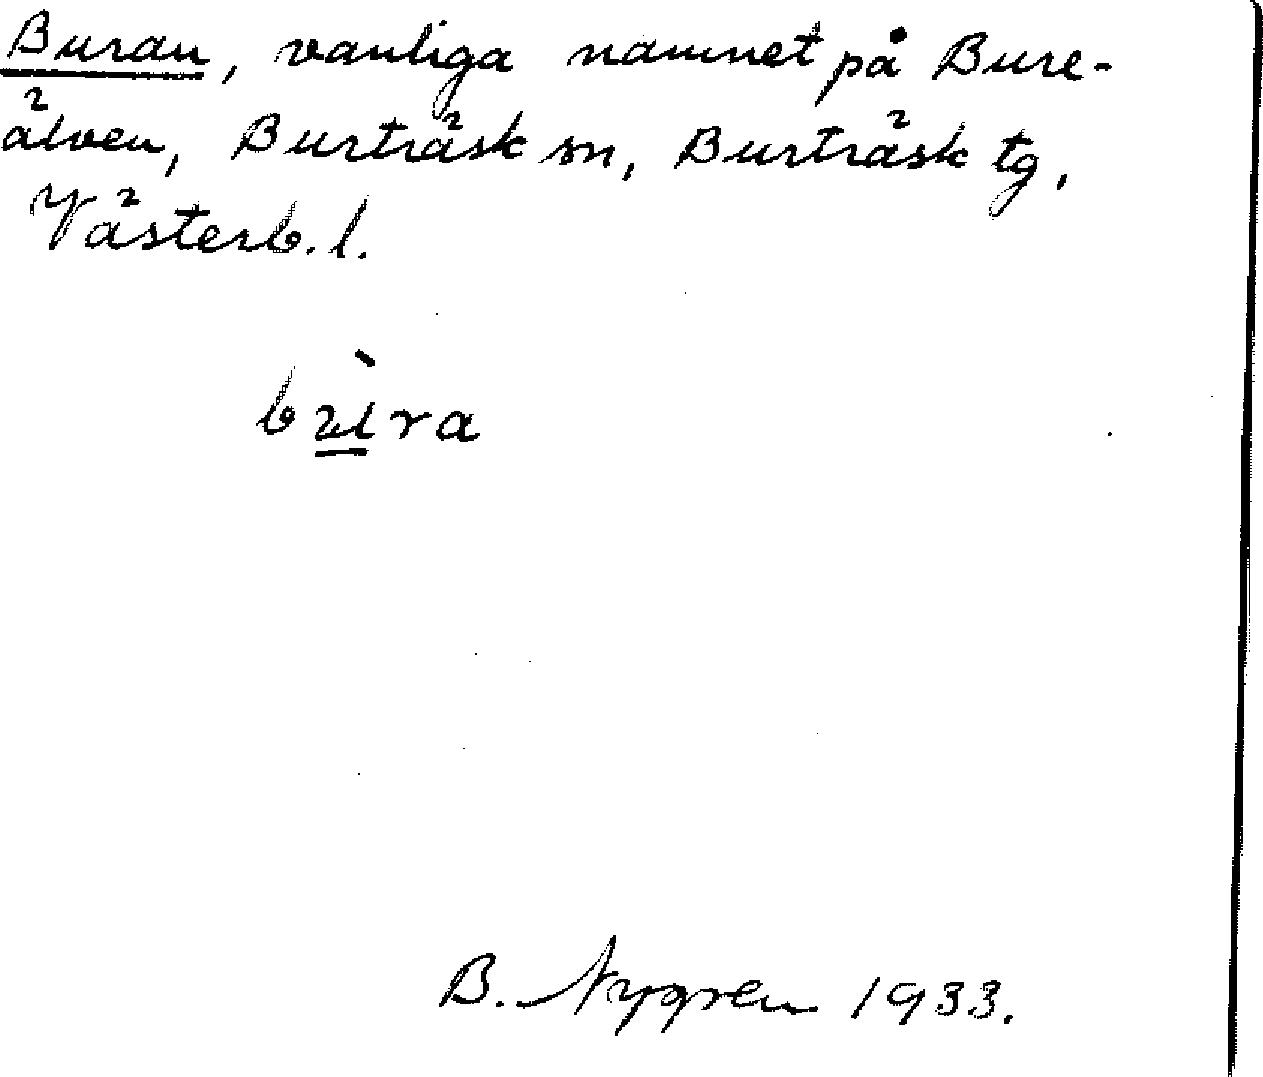 Buran, vanliga namnet på Bure-
älven, Burträsk sn, Burträsk tg,
Västerb. l.
bù̱ra
B. Nygren 1933.